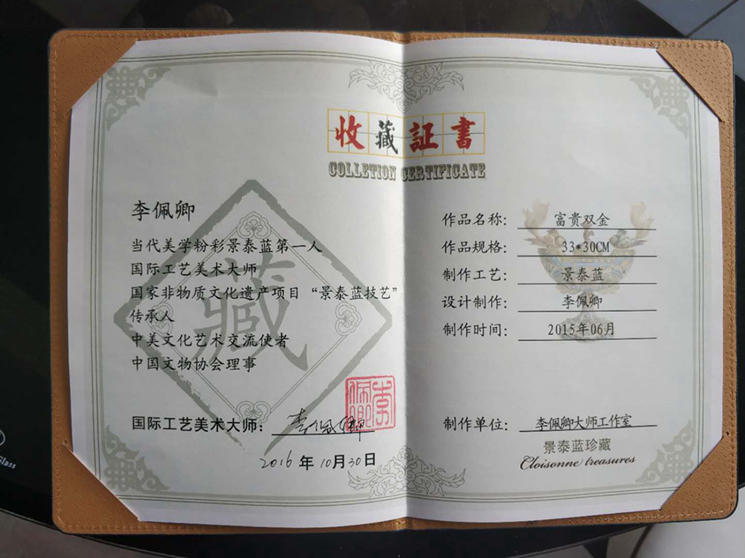 收藏証書
COLLETION CERTIFICATE
李佩卿
当代美学粉彩景泰蓝第一人
国际工艺美术大师
国家非物质文化遗产项目“景泰蓝技艺”
传承人
中美文化艺术交流使者
中国文物协会理事
藏
国际工艺美术大师：李佩卿
2016年10月30日
李佩卿
作品名称：富贵双金
作品规格：33*30CM
制作工艺：景泰蓝
设计制作：李佩卿
制作时间：2015年06月
制作单位：李佩卿大师工作室
景泰蓝珍藏
Cloisonne treasures